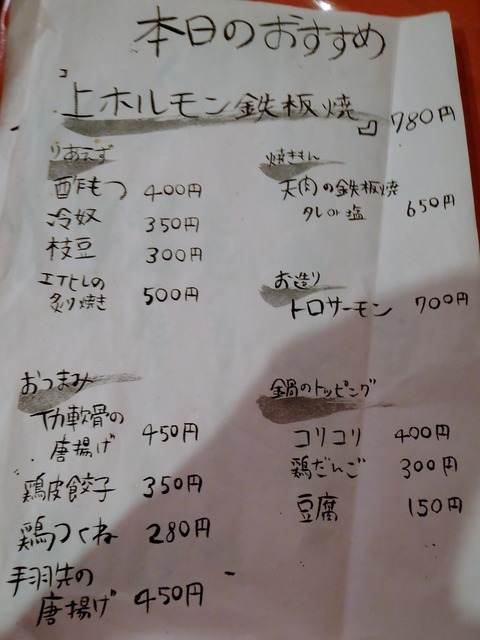 本日のおすすめ
「上ホルモン鉄板焼」 780円
りあえず
酢もつ 400円
冷奴 350円
枝豆 300円
エイヒレの
炙り焼き 500円
焼きもん
天肉の鉄板焼
タレor塩 650円
お造り
トロサーモン 700円
おつまみ
イカ軟骨の
唐揚げ 450円
鶏皮餃子 350円
鶏つくね 280円
手羽先の
唐揚げ 450円
鍋のトッピング
コリコリ 400円
鶏だんご 300円
豆腐 150円